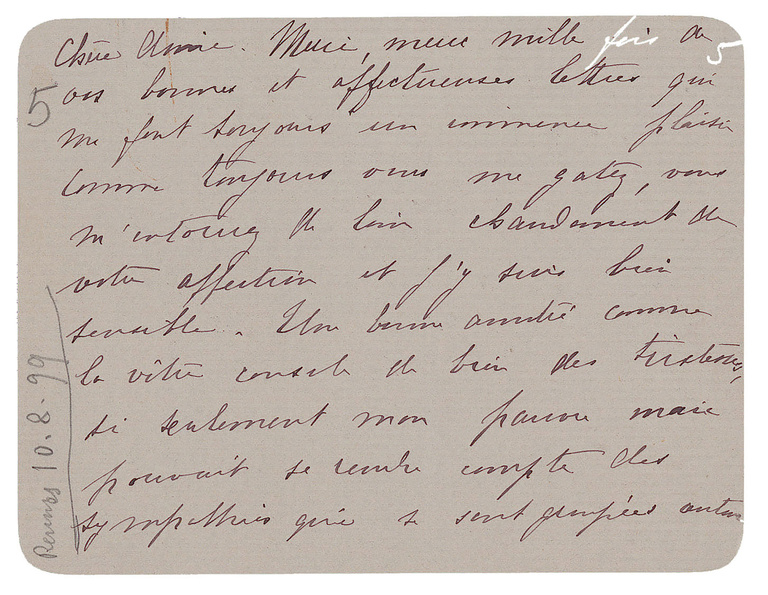 Chère Amie. Merci, merci mille fois de
vos bonnes et affectueuses lettres qui
me font toujours un immense plaisir
comme toujours vous me gatez, vous
m'entourez de loin chaudement de
votre affection et j'y suis bien
sensible. Une bonne amitié comme
la vôtre console de bien des tristesses,
si seulement mon pauvre mari
pouvait se rendre compte des
sympathies qui se sont groupées autour
5
5
Rennes 10.8.99